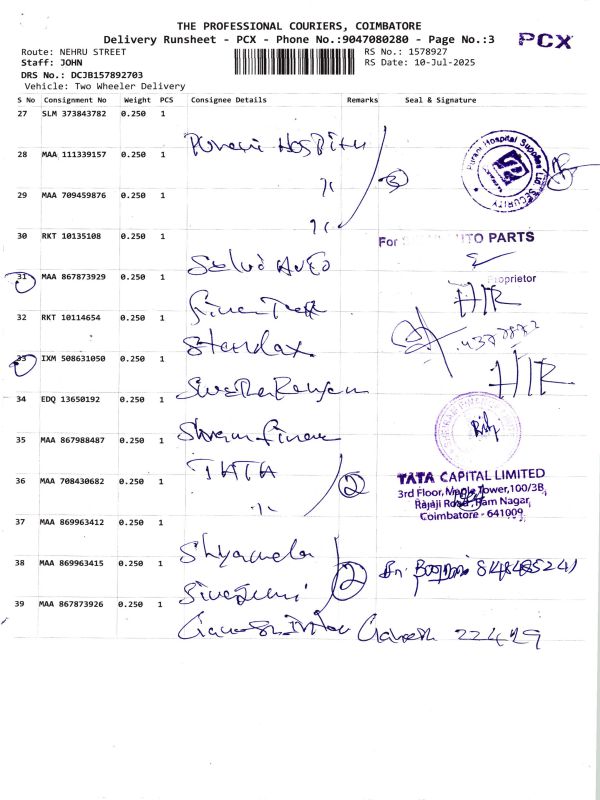 THE PROFESSIONAL COURIERS, COIMBATORE
Delivery Runsheet - PCX - Phone No.:9047080280 - Page No.:3
PCX
Route: NEHRU STREET
RS No.: 1578927
Staff: JOHN
RS Date: 10-Jul-2025
DRS No.: DCJB157892703
Vehicle: Two Wheeler Delivery
S No Consignment No Weight PCS Consignee Details Remarks Seal & Signature
27 SLM 373843782 0.250 1
Hospital
28 MAA 111339157 0.250 1
Purani Hospital Supplies Ltd SECURITY
29 MAA 709459876 0.250 1
3
30 RKT 10135108 0.250 1
For AUTO PARTS
Selvo Auto
31 MAA 867873929 0.250 1
Proprietor
H/R
32 RKT 10114654 0.250 1
33 IXM 508631050 0.250 1
H/R
34 EDQ 13650192 0.250 1
35 MAA 867988487 0.250 1
TATA
36 MAA 708430682 0.250 1
2
TATA CAPITAL LIMITED
3rd Floor, Maple Tower,100/3B,
Rajaji Road, Ram Nagar,
Coimbatore - 641009
37 MAA 869963412 0.250 1
Shyamala
38 MAA 869963415 0.250 1
2
39 MAA 867873926 0.250 1
Ganesh 22479